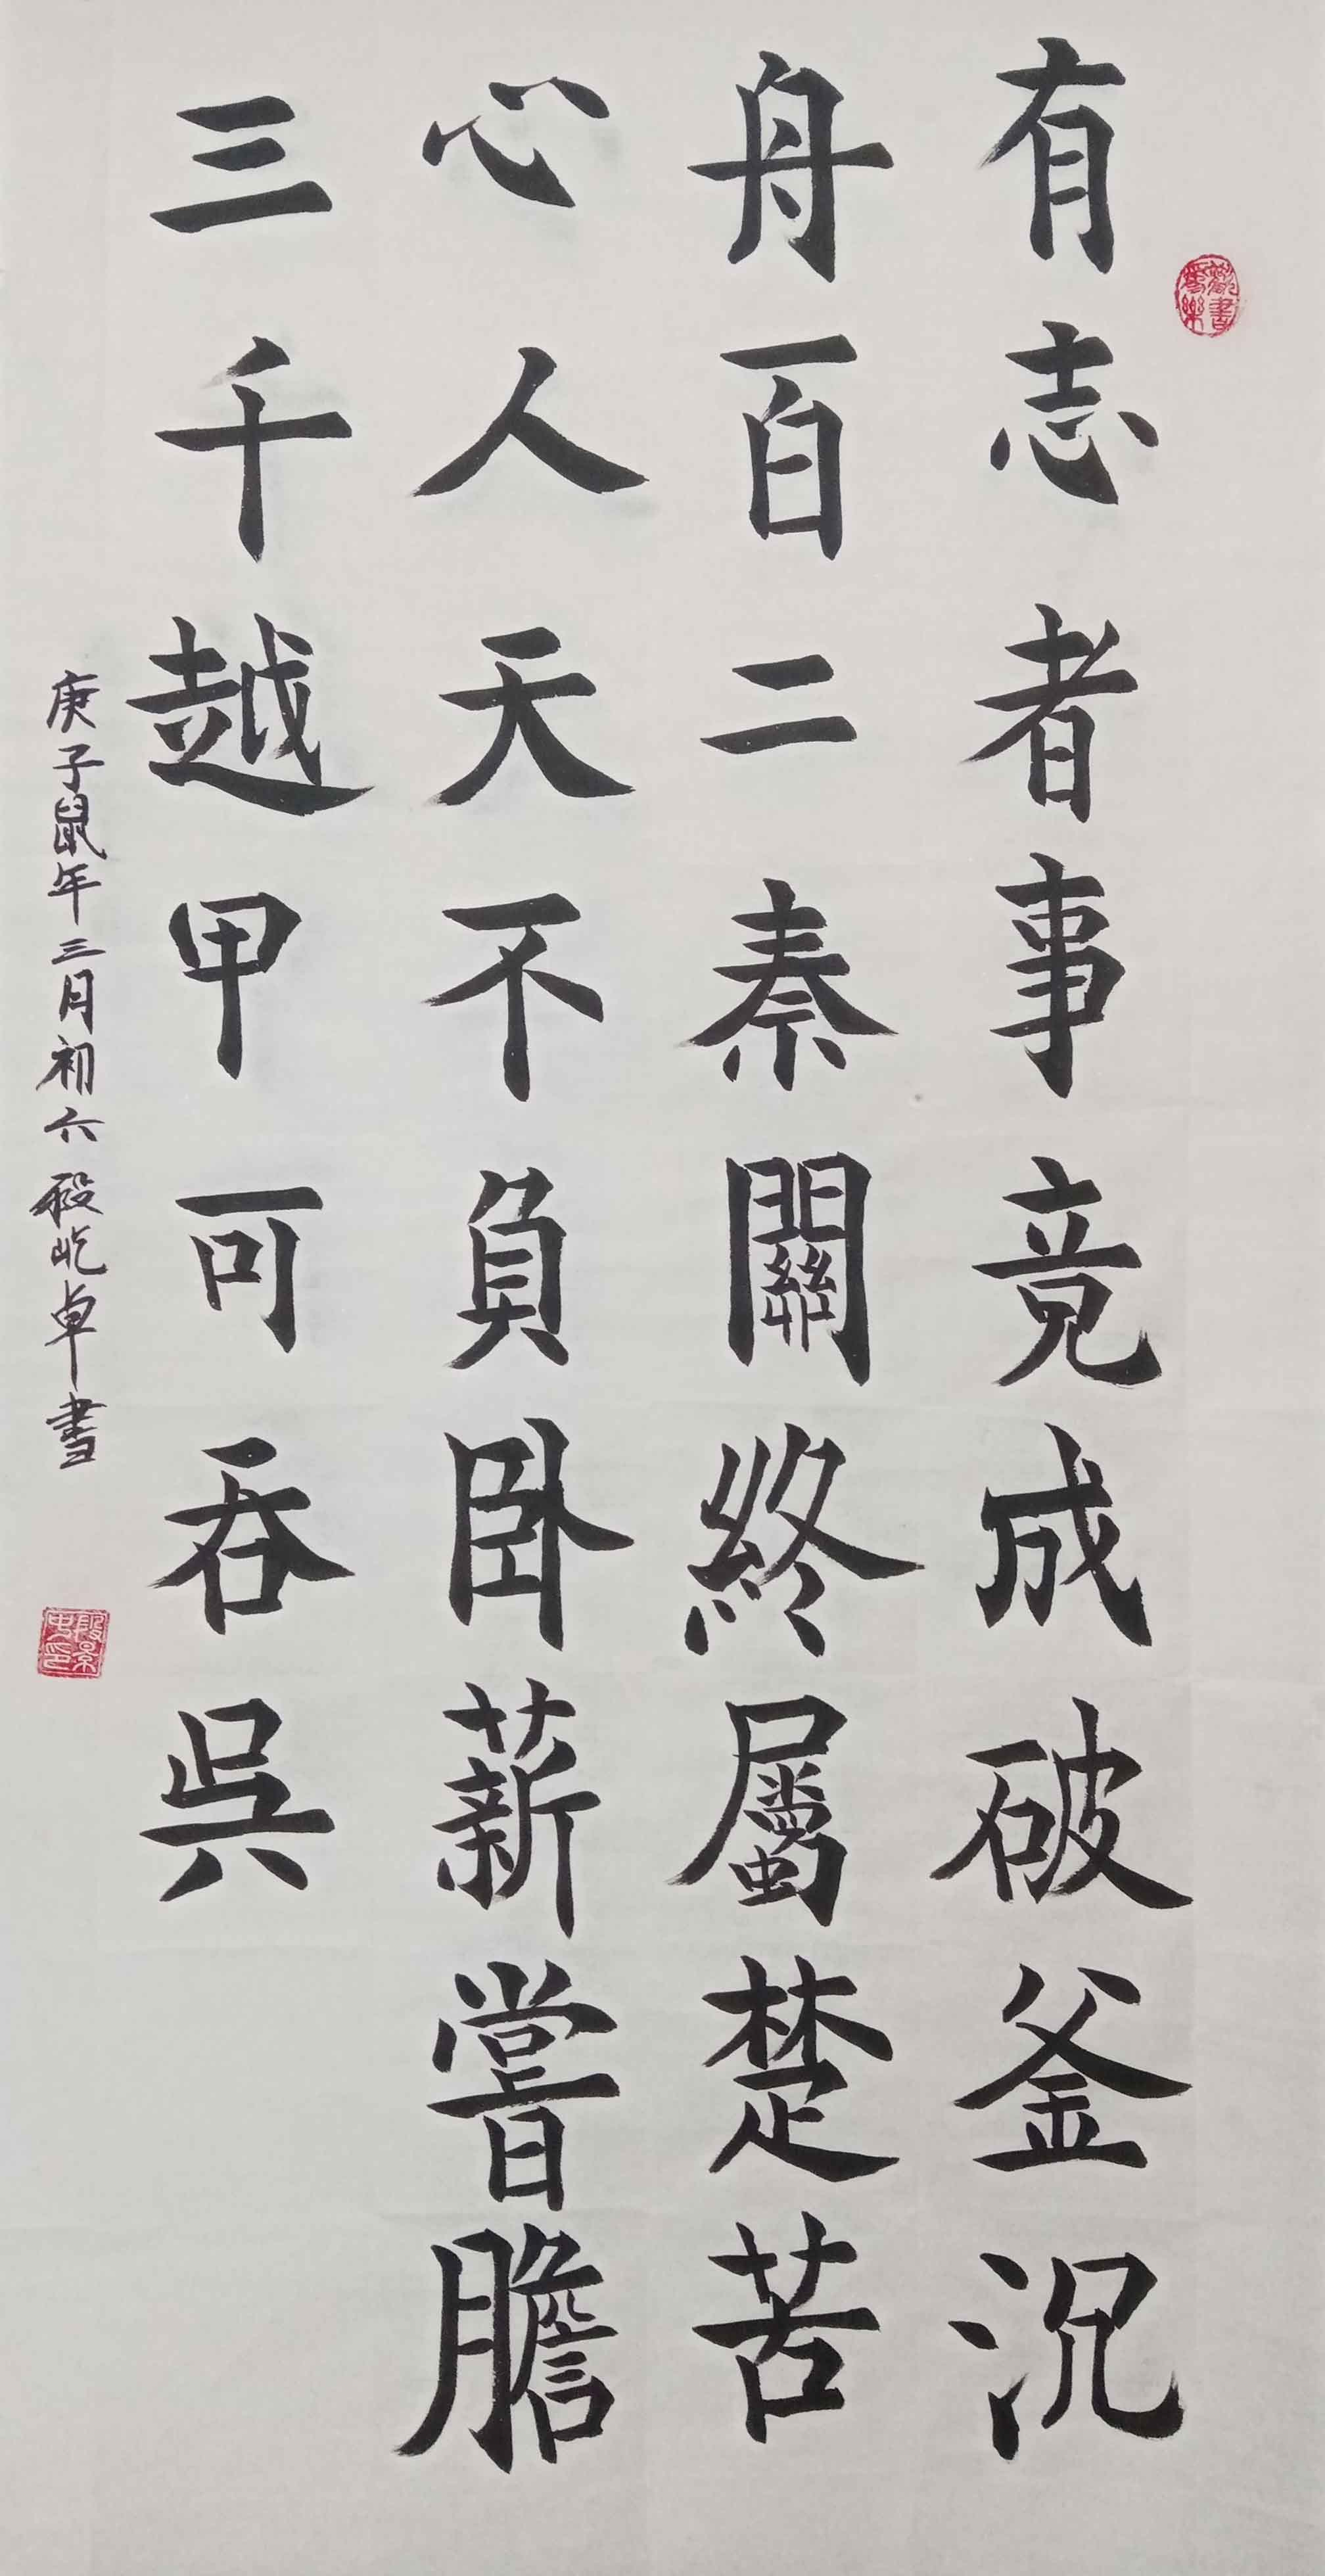 有志者事竟成破釜沉
舟百二秦關終屬楚苦
心人天不負卧薪嘗膽
三千越甲可吞吳
庚子鼠年三月初六 段屹卓書